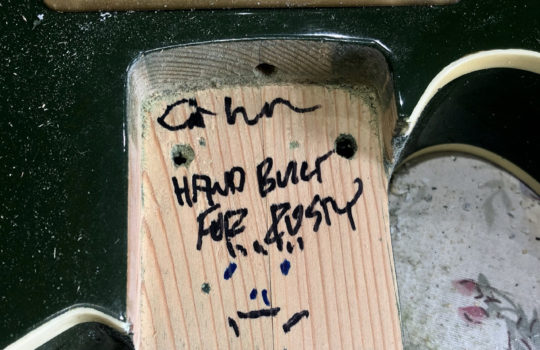 HAND BUILT
FOR RUSTY